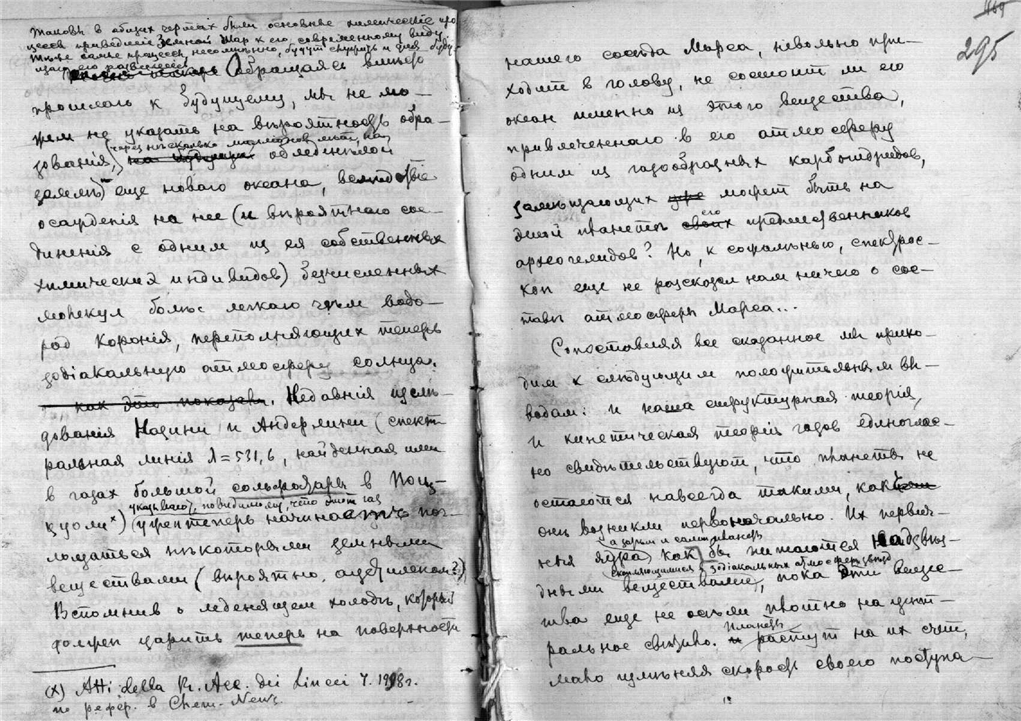 Таковы в общих чертах были основные химические про
цессы приведшие Земной шар к его современному виду
Те же самые процессы несомненно, будут служить и для буду
щаго его развитія
Обращаясь вместо
прошлаго к будущему, мы не мо-
жем не указать на вѣроятность обра-
зованія, через несколько миллионов лет, на
обледенѣлой
землѣ еще новаго океана, вслѣдствіе
осажденія на нее (и вѣроятнаго сое-
диненія с одним из ея собственных
химических индивидов) безчисленных
молекул болѣе легкаго чѣм водо-
род Коронія, переполняющих теперь
зодіакальную атмосферу солнца.
как это показали. Недавнія изслѣ-
дованія Назини и Андерлини (спект-
ральная линія λ=531,6, найденная ими
в газах большой сольфатары в Поц-
цуоли x) указывают, повидимому, что этот газ
уже теперь начинает по-
глощаться нѣкоторыми земными
веществами (вѣроятно, ацетиленом?).
Вспомнив о леденящем холодѣ, который
должен царить теперь на поверхности
(x) Atti della R. Acc. dei Lincei 7. 1898 г.
по рефер. в Chem. News.
469
295
нашего сосѣда Марса, невольно при-
ходит в голову, не состоит ли его
океан именно из этого вещества,
привлеченнаго в его атмосферу
одним из газообразных карбогидридов,
замѣщающих уже может быть на
этой планетѣ своих его предшественников
археогелидов? Но, к сожаленью, спектрос-
коп еще не разсказал нам ничего о сос-
тавѣ атмосферы Марса...
Сопоставляя все сказанное мы прихо-
дим к слѣдующим положительным вы-
водам: и наша структурная теорія,
и кинетическая теорія газов единоглас-
но свидѣтельствуют, что планеты не
остаются навсегда такими, какими
они возникли первоначально. Их первич-
ныя ядра, а заодно и сами планеты
как бы питаются надзвѣзд-
ными веществами, скопляющимися в зодіакальных атмосферах звѣзд
пока эти веще-
ства еще не осѣли плотно на цент-
ральное свѣтило. Планеты
и растут на их счет,
мало измѣняя скорость своего поступа-